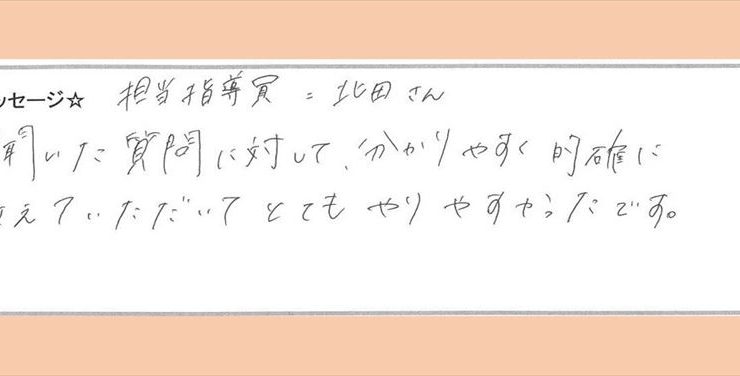 ッセージ☆ 担当指導員=北田さん
聞いた質問に対して、分かりやすく的確に
えていただいてとてもやりやすかったです。